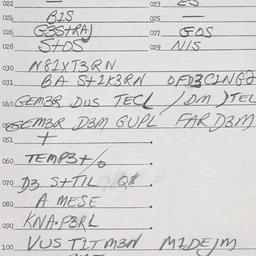 022 — 023 ES
024 BIS 025 —
026 G3STRAJ 027 GOS
028 STOS 029 NIS
030 N81XT3RN
031 BA St1K3RN OFD3C1NG?
040 GEM3R DUS TECL / DM ) TEL
GEM3R D3M GUPL FAR D3M
051 +
060 TEMP3t/o
070 D3 S+TIL
080 A MESE
090 KNA.P3RL
100 VUS T1TM3N M1DEJM